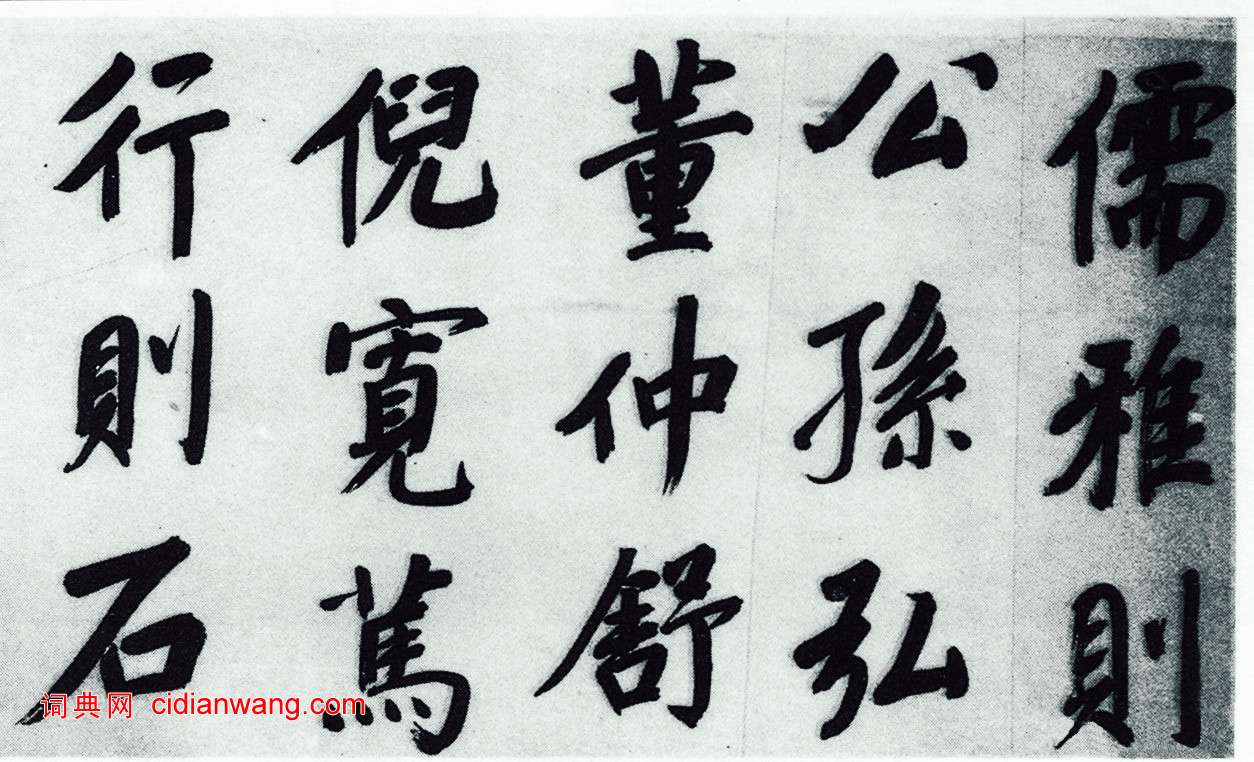 儒雅則
公孫弘
董仲舒
倪寬篤
行則石
词典网 cidianwang.com